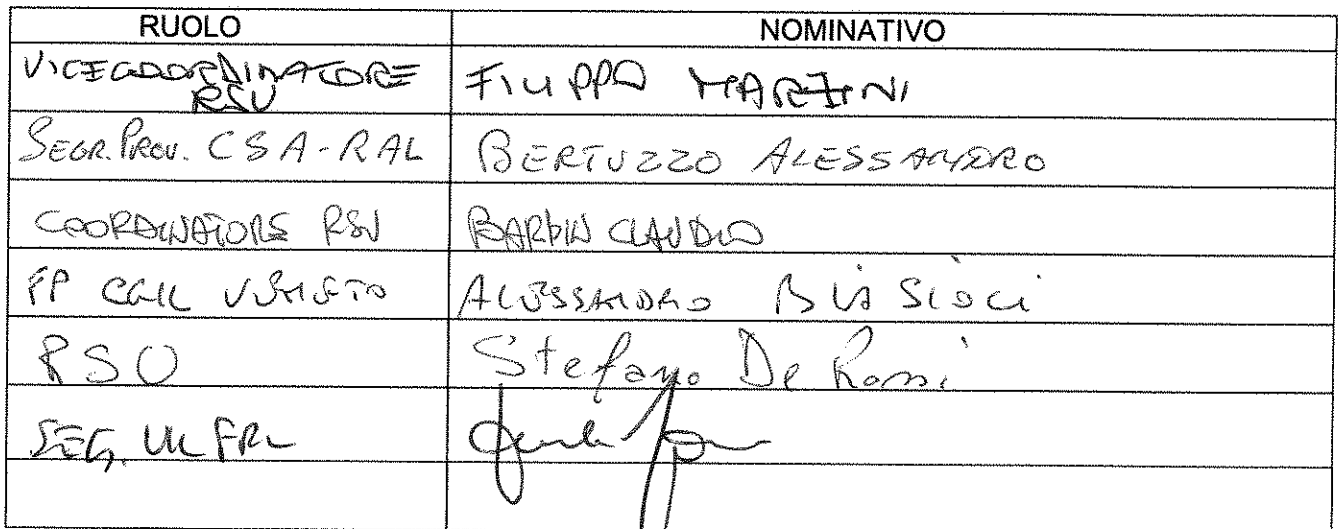 RUOLO NOMINATIVO
VICECOORDINATORE RSU FILIPPO MARZINI
SEGR. PROV. CSA-RAL BERTUZZO ALESSANDRO
COORDINATORE RSU BARDIN CLAUDIO
FP CGIL VENETO ALESSANDRO
RSU Stefano De Rossi
SEG, UIL FPL